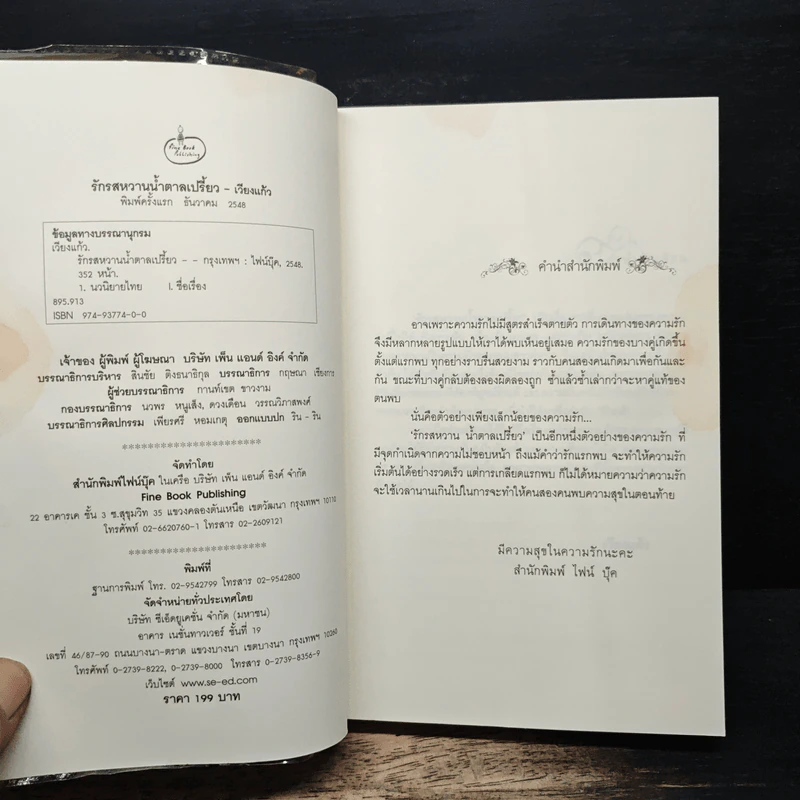 Fine Book
Publishing
รักรสหวานน้ำตาลเปรี้ยว - เวียงแก้ว
พิมพ์ครั้งแรก ธันวาคม 2548
ข้อมูลทางบรรณานุกรม
เวียงแก้ว.
รักรสหวานน้ำตาลเปรี้ยว - - กรุงเทพฯ : ไฟน์บุ๊ค, 2548.
352 หน้า.
1. นวนิยายไทย I. ชื่อเรื่อง
895.913
ISBN 974-93774-0-0
เจ้าของ ผู้พิมพ์ ผู้โฆษณา บริษัท เพ็น แอนด์ อิงค์ จำกัด
บรรณาธิการบริหาร สินชัย ติงธนาธิกุล บรรณาธิการ กฤษณา เชียงการ
ผู้ช่วยบรรณาธิการ กานท์เขต ขาวงาม
กองบรรณาธิการ นวพร หนูเส็ง, ดวงเดือน วรรณวิภาสพงค์
บรรณาธิการศิลปกรรม เพียรศรี หอมเกตุ ออกแบบปก ริน - ริน
**********************
จัดทำโดย
สำนักพิมพ์ไฟน์บุ๊ค ในเครือ บริษัท เพ็น แอนด์ อิงค์ จำกัด
Fine Book Publishing
22 อาคารเค ชั้น 3 ซ.สุขุมวิท 35 แขวงคลองตันเหนือ เขตวัฒนา กรุงเทพฯ 10110
โทรศัพท์ 02-6620760-1 โทรสาร 02-2609121
**********************
พิมพ์ที่
ฐานการพิมพ์ โทร. 02-9542799 โทรสาร 02-9542800
จัดจำหน่ายทั่วประเทศโดย
บริษัท ซีเอ็ดยูเคชั่น จำกัด (มหาชน)
อาคาร เนชั่นทาวเวอร์ ชั้นที่ 19
เลขที่ 46/87-90 ถนนบางนา-ตราด แขวงบางนา เขตบางนา กรุงเทพฯ 10260
โทรศัพท์ 0-2739-8222, 0-2739-8000 โทรสาร 0-2739-8356-9
เว็บไซต์ www.se-ed.com
ราคา 199 บาท
คำนำสำนักพิมพ์
อาจเพราะความรักไม่มีสูตรสำเร็จตายตัว การเดินทางของความรัก
จึงมีหลากหลายรูปแบบให้เราได้พบเห็นอยู่เสมอ ความรักของบางคู่เกิดขึ้น
ตั้งแต่แรกพบ ทุกอย่างราบรื่นสวยงาม ราวกับคนสองคนเกิดมาเพื่อกันและ
กัน ขณะที่บางคู่กลับต้องลองผิดลองถูก ซ้ำแล้วซ้ำเล่ากว่าจะหาคู่แท้ของ
ตนพบ
นั่นคือตัวอย่างเพียงเล็กน้อยของความรัก...
'รักรสหวาน น้ำตาลเปรี้ยว' เป็นอีกหนึ่งตัวอย่างของความรัก ที่
มีจุดกำเนิดจากความไม่ชอบหน้า ถึงแม้คำว่ารักแรกพบ จะทำให้ความรัก
เริ่มต้นได้อย่างรวดเร็ว แต่การเกลียดแรกพบ ก็ไม่ได้หมายความว่าความรัก
จะใช้เวลานานเกินไปในการจะทำให้คนสองคนพบความสุขในตอนท้าย
มีความสุขในความรักนะคะ
สำนักพิมพ์ ไฟน์ บุ๊ค